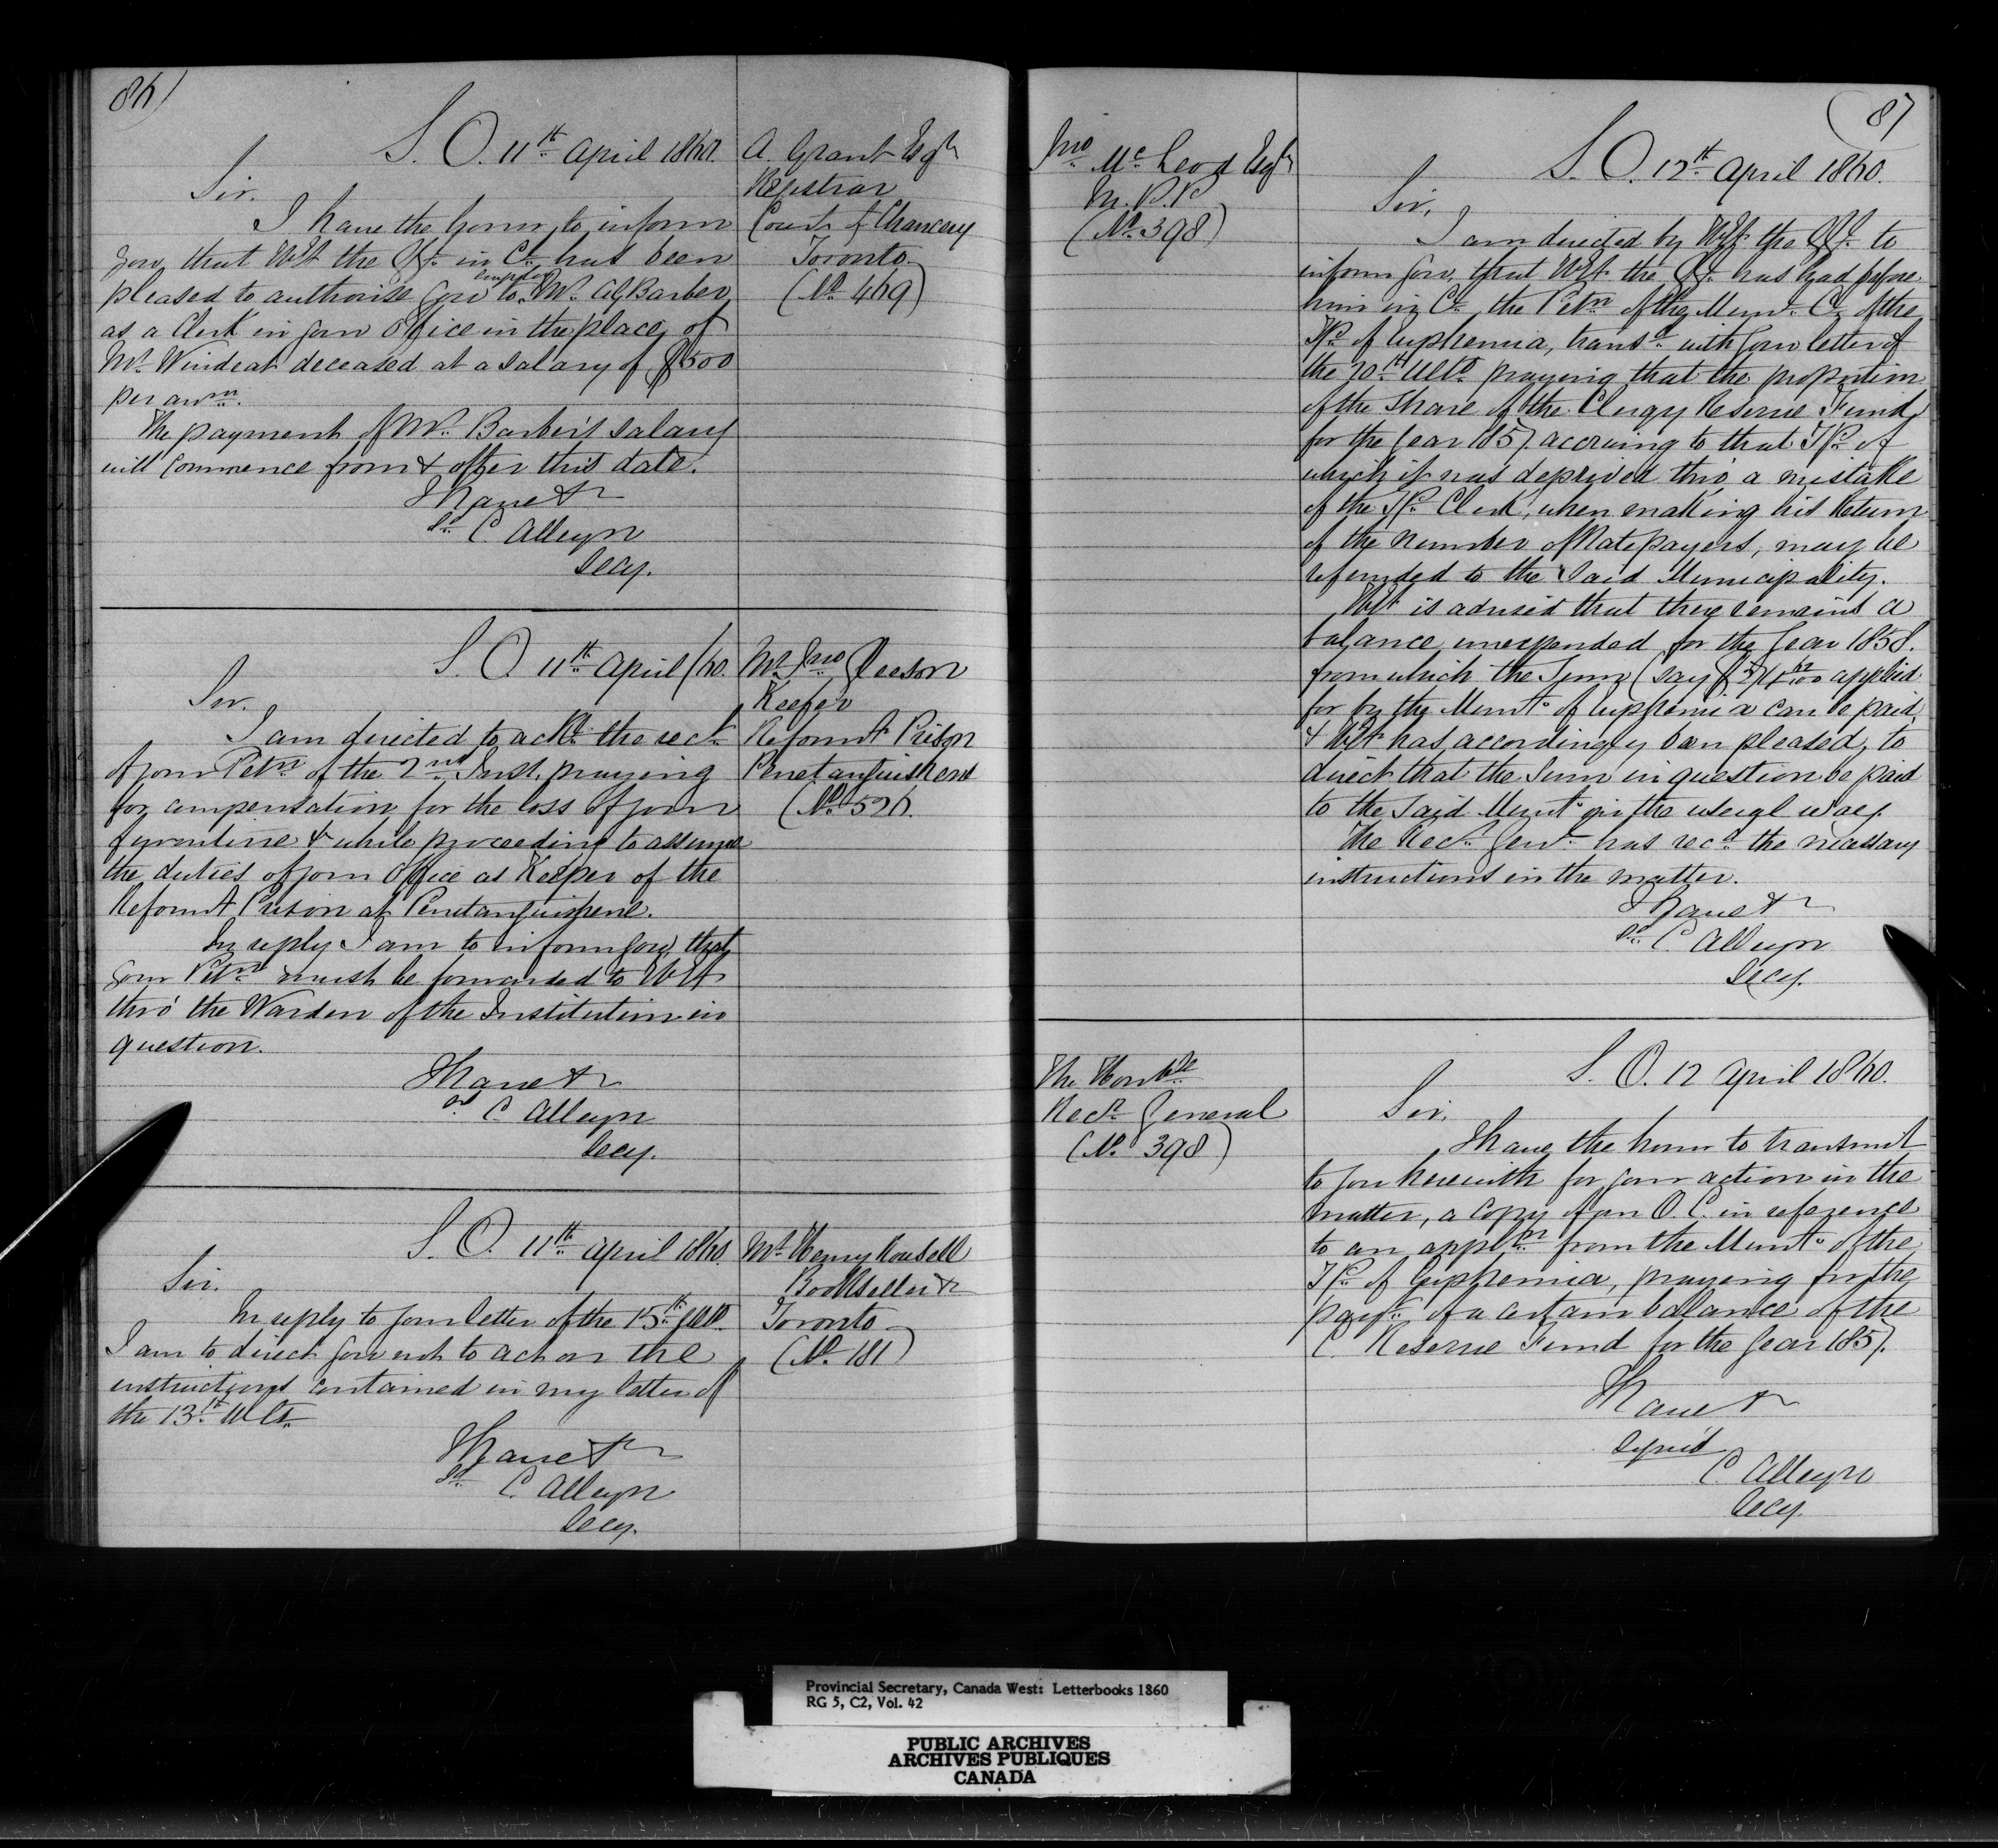 86)
S. O. 11th April 1860.
A. Grant Esqr
Registrar
Court of Chancery
Toronto
(No 469)
Sir.
I have the honor to inform
you, that HE the Gr. in Ct. has been
pleased to authorise you to employ Mr. AG Barber
as a Clerk in your Office in the place of
Mr. Windeat deceased at a salary of $500
per annm.
The payment of Mr. Barber's salary
will commence from & after this date.
I have &c
Sd. C Alleyn
Secy.
S. O. 11th April /60.
Mr. Jno
Keeper
Reformt Prison
Penetanguishene
(No 526.
Sir.
I am directed to ackn. the rect.
of your Petn. of the 2nd Inst. praying
for compensation for the loss of your
furniture & while proceeding to assume
the duties of your Office as Keeper of the
Reformt Prison at Penetanguishene.
In reply I am to inform you, that
your Petn. must be forwarded to HE
thro' the Warden of the Institution in
question.
I have &c
Sd. C. Alleyn
Secy.
S. O. 11th April 1860.
Mr. Henry Rowsell
Bookseller &c
Toronto
(No. 181)
Sir.
In reply to your letter of the 15th Ulto.
I am to direct you not to act on the
instructions contained in my letter of
the 13th Ulto.
I have &c
Sd. C. Alleyn
Secy.
(87
S. O. 12th April 1860.
Jno. McLeod Esqr
M.P.P.
(No. 398)
Sir,
I am directed by HE the Gr. to
inform you, that HE the Gr. has had before
him in Ct. the Petn. of the Munl. Cl. of the
Tp. of Euphemia, transd. with your letter of
the 20th Ulto. praying that the proportion
of the share of the Clergy Reserve Fund
for the year 1857. accruing to that Tp. of
which it was deprived thro' a mistake
of the Tp. Clerk, when making his Return
of the number of Ratepayers, may be
refunded to the said Municipality.
HE is advised that there remains a
balance unexpended for the year 1858.
from which the Sum (say applied
for by the Munty. of Euphemia can be paid,
& HE has accordingly been pleased, to
direct that the Sum in question be paid
to the said Munty. in the usual way.
The Recr. Genl. has recd. the necessary
instructions in the matter.
I have &c
Sd. C. Alleyn
Secy.
S. O. 12 April 1860.
The Honble
Recr. General
(No. 398)
Sir.
I have the honor to transmit
to you herewith for your action in the
matter, a copy of an O. C. in reference
to an appln from the Munty. of the
Tp. of Euphemia, praying for the
paymt. of a certain balance of the
C. Reserve Fund for the year 1857.
I have &c
Signed
C. Alleyn
Secy.
Provincial Secretary, Canada West: Letterbooks 1860
RG 5, C2, Vol. 42
PUBLIC ARCHIVES
ARCHIVES PUBLIQUES
CANADA